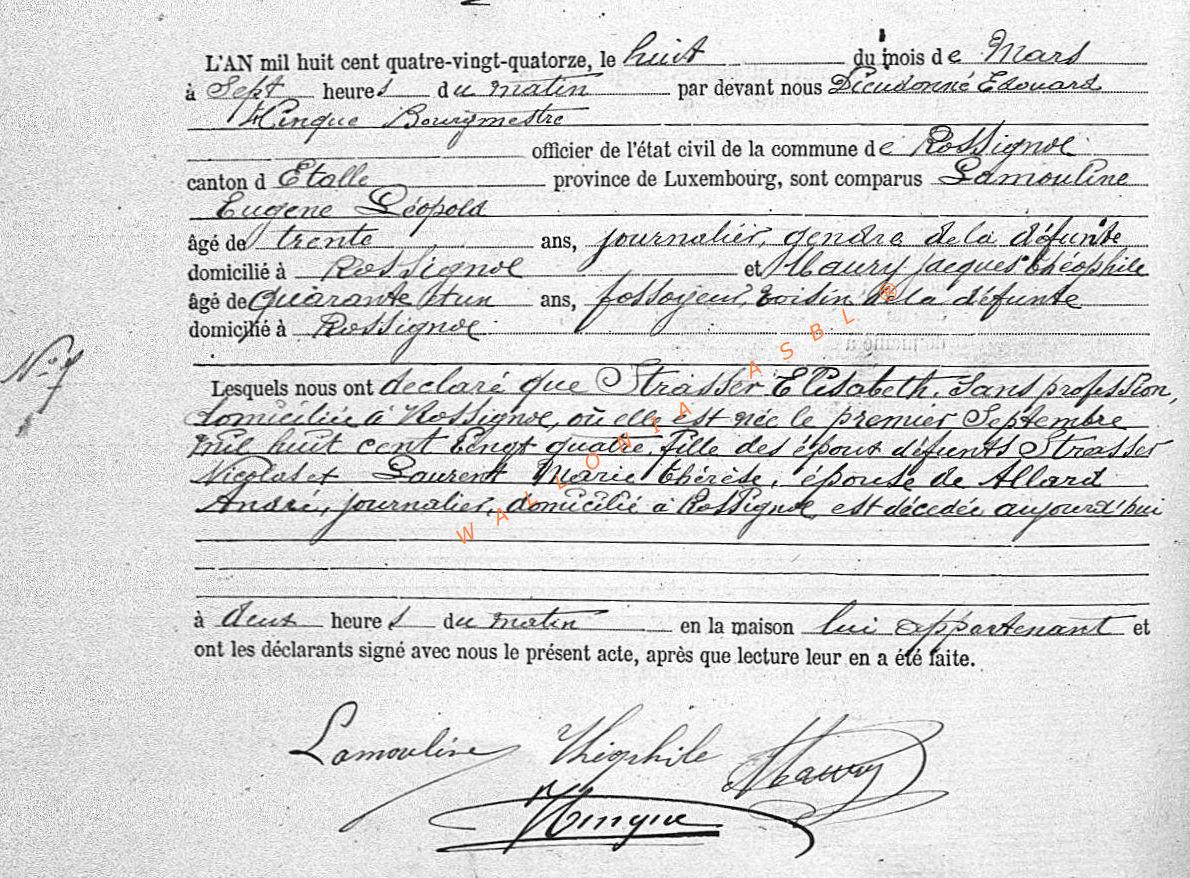 L'AN mil huit cent quatre-vingt-quatorze, le huit du mois de Mars
à Sept heures du matin par devant nous Dieudonné Edouard
Hinque Bourgmestre
officier de l'état civil de la commune de Rossignol
canton d Etalle province de Luxembourg, sont comparus Lamouline
Eugene Léopold
âgé de trente ans, journalier, gendre de la défunte
domicilié à Rossignol et Maury Jacques théophile
âgé de quarante et un ans, fossoyeur, voisin de la défunte
domicilié à Rossignol
Lesquels nous ont declaré que Strasser Elisabeth, sans profession,
domiciliée à Rossignol, où elle est née le premier Septembre
mil huit cent vingt quatre, fille des époux défunts Strasser
Nicolas et Laurent Marie thérèse, épouse de Allard
André, journalier, domicilié à Rossignol, est décedée aujourd'hui
à deux heures du matin en la maison lui appartenant et
ont les déclarants signé avec nous le présent acte, après que lecture leur en a été faite.
Lamouline Théophile Maury
Hinque
WALLONIA ASBL ®